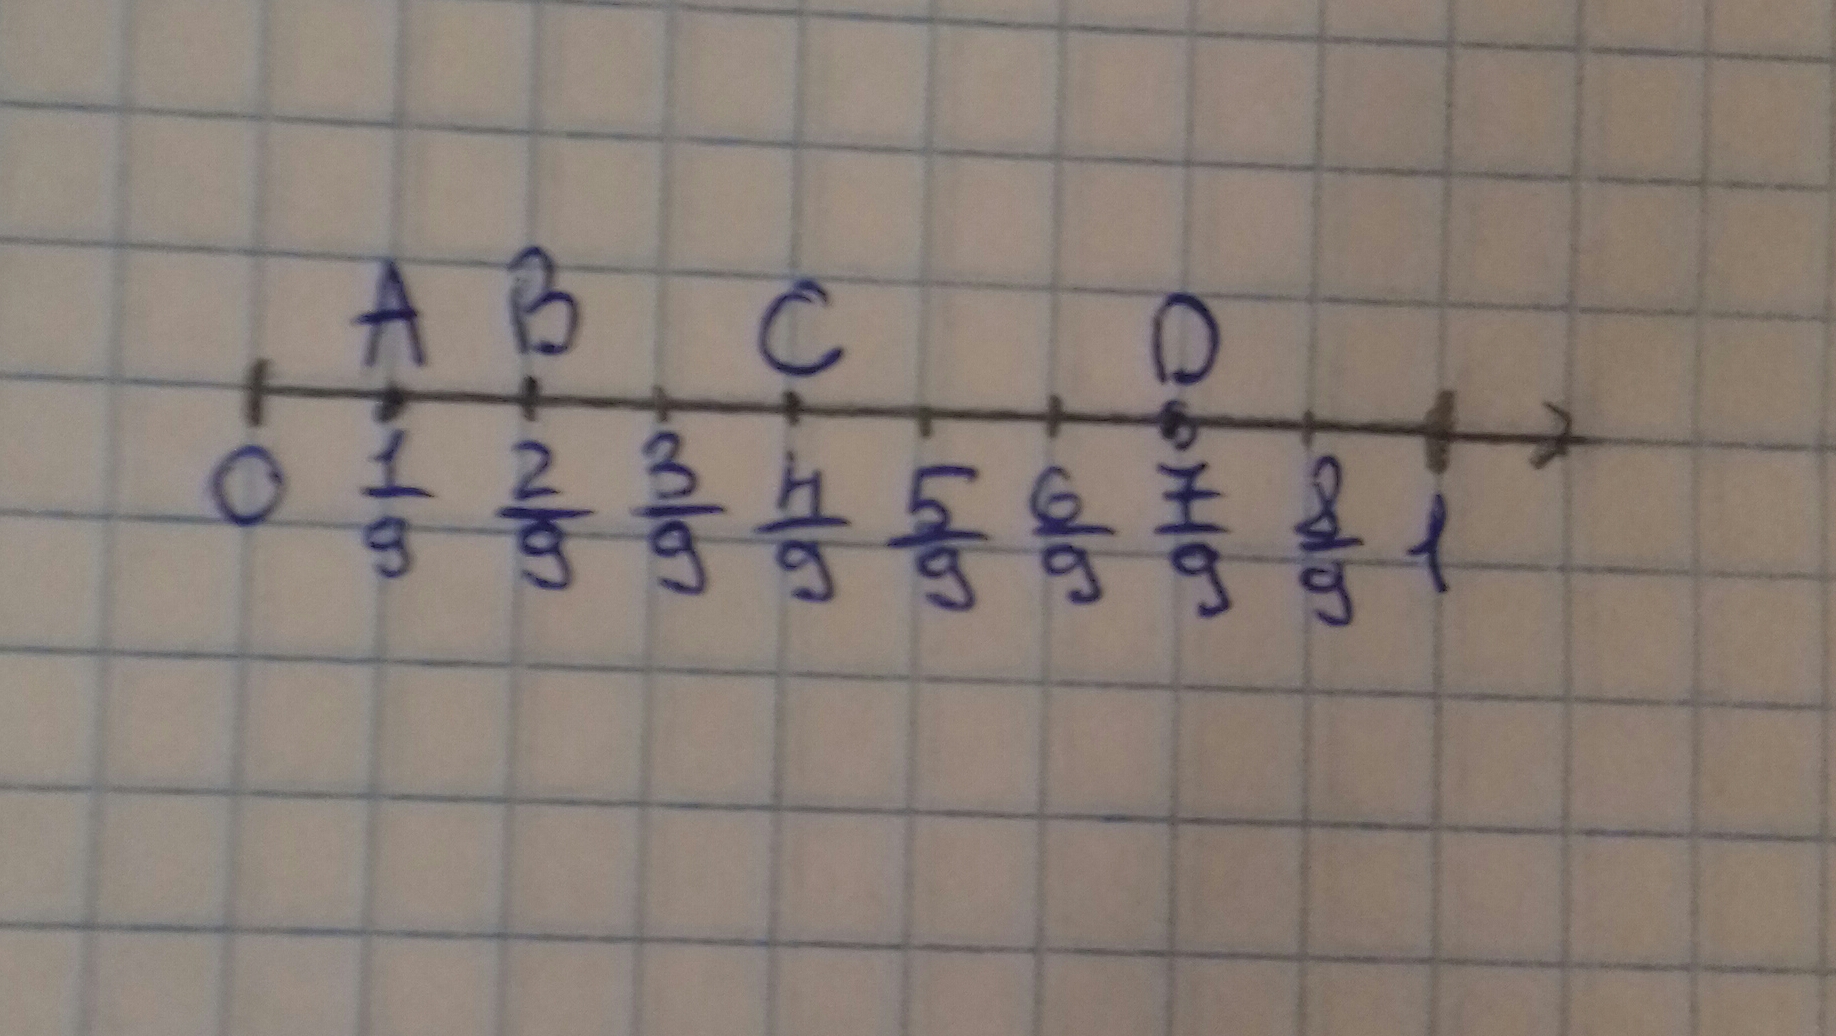 A B C D
0 1/9 2/9 3/9 4/9 5/9 6/9 7/9 8/9 1